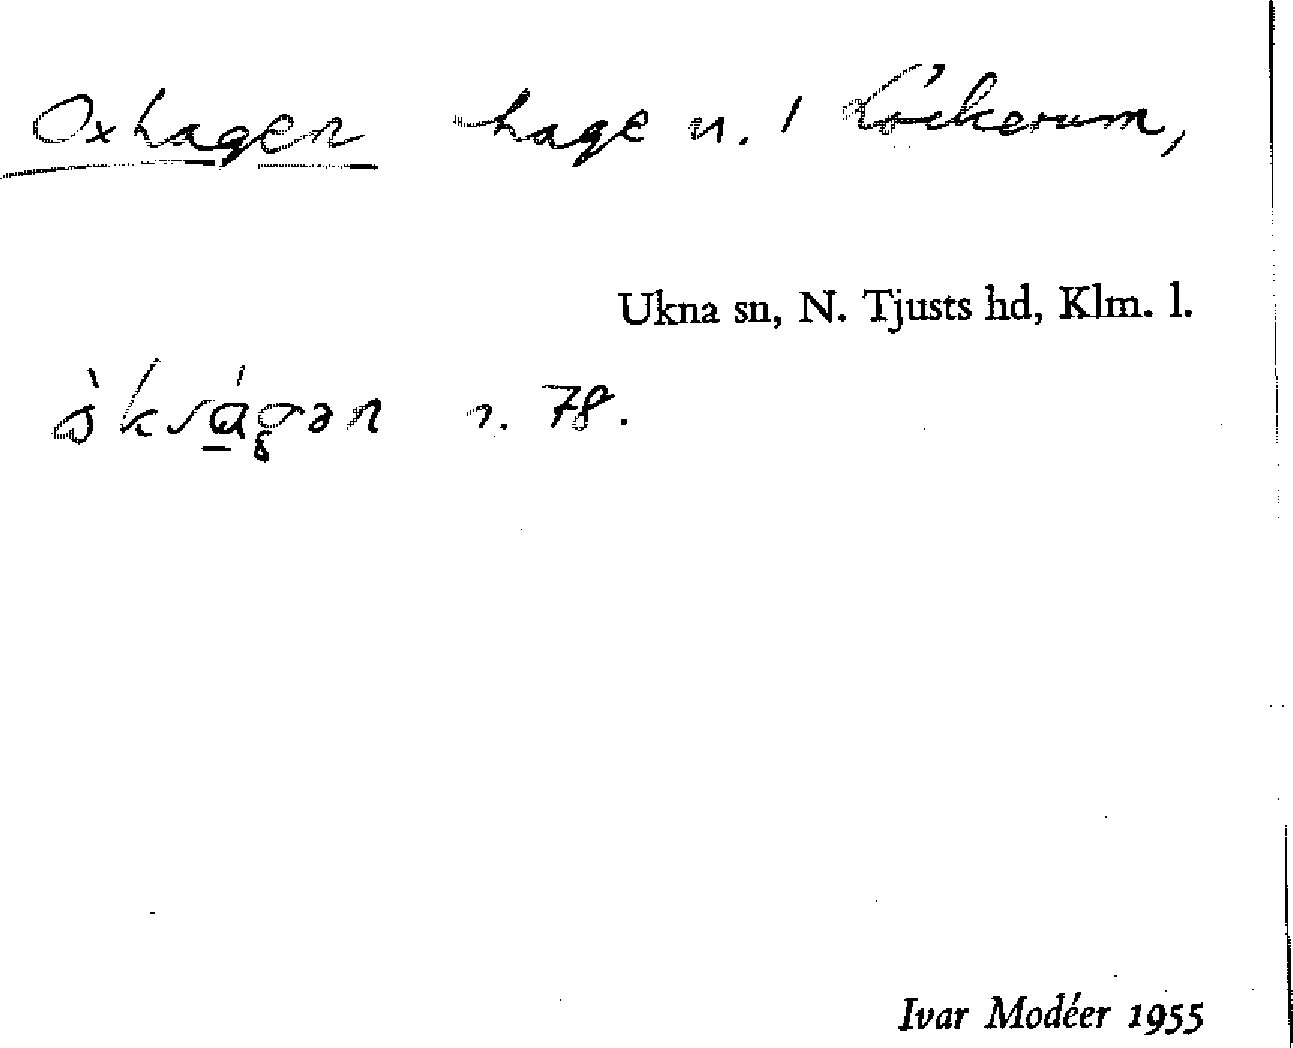 Oxhagen hage n. 1 Lockerum,
Ukna sn, N. Tjusts hd, Klm. l.
n. 78.
Ivar Modéer 1955